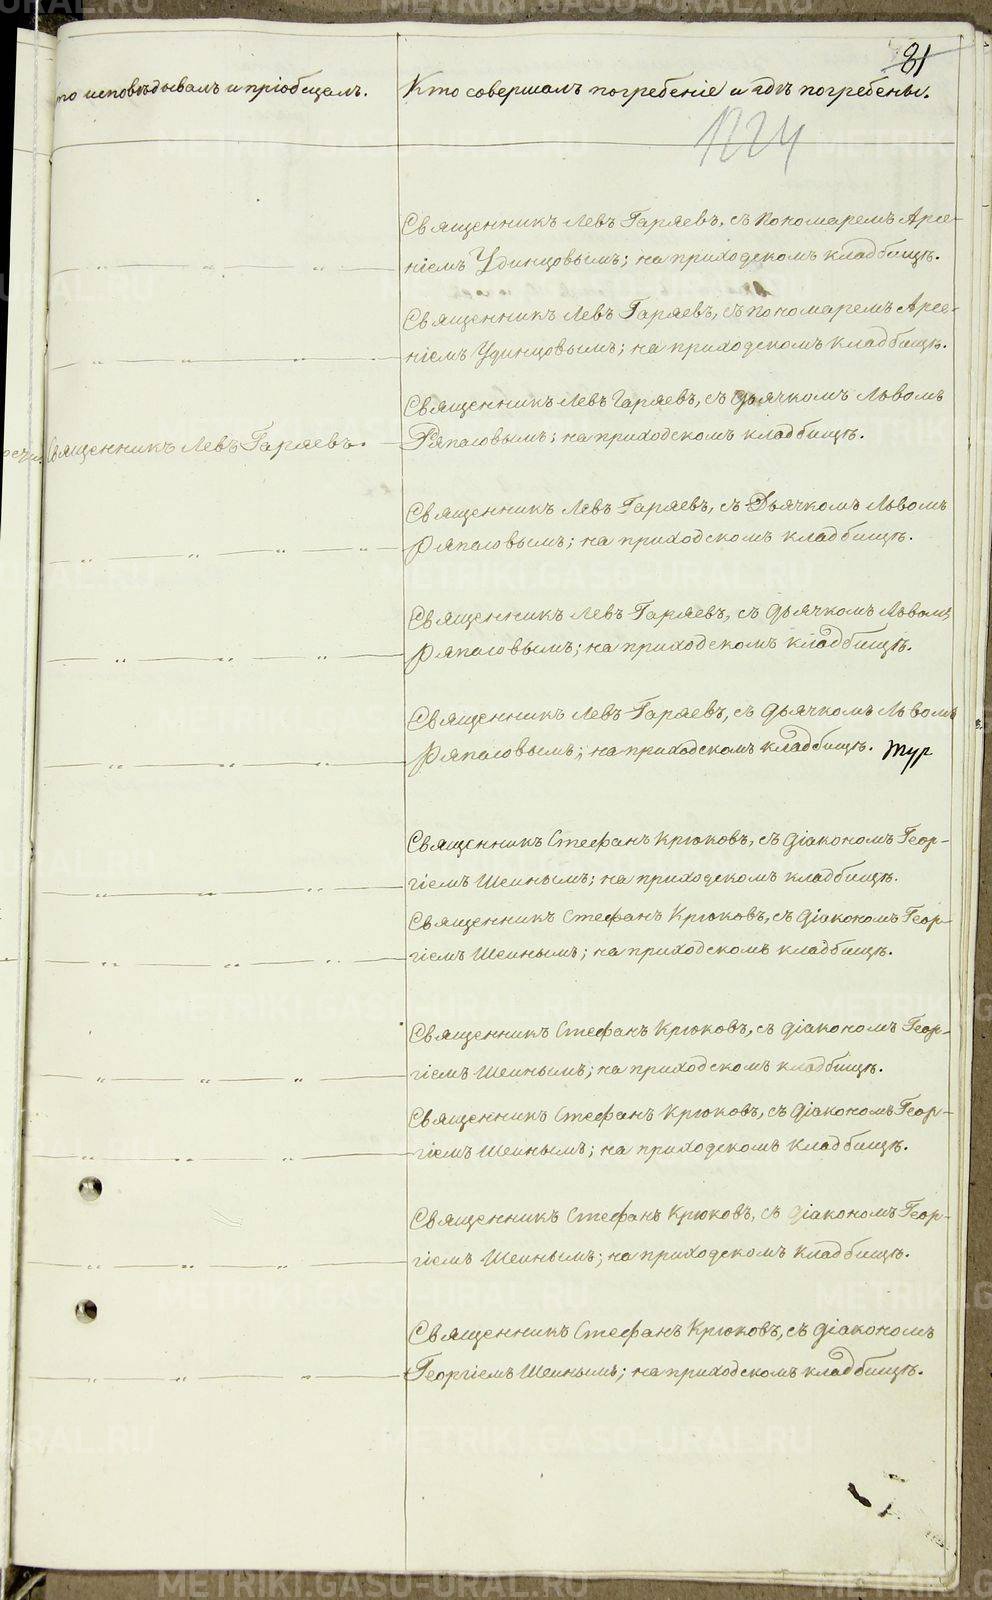 81
Кто исповѣдывалъ и пріобщалъ.
Кто совершалъ погребеніе и гдѣ погребены.
1224
Священникъ Левъ Гаряевъ, съ пономаремъ Арсе-
ніемъ Удинцовымъ; на приходскомъ кладбищѣ.
Священникъ Левъ Гаряевъ, съ пономаремъ Арсе-
ніемъ Удинцовымъ; на приходскомъ кладбищѣ.
Священникъ Левъ Гаряевъ.
Священникъ Левъ Гаряевъ, съ дьячкомъ Львомъ
Ряпасовымъ; на приходскомъ кладбищѣ.
Священникъ Левъ Гаряевъ, съ Дьячкомъ Львомъ
Ряпасовымъ; на приходскомъ кладбищѣ.
Священникъ Левъ Гаряевъ, съ дьячкомъ Львомъ
Ряпасовымъ; на приходскомъ кладбищѣ.
Священникъ Левъ Гаряевъ, съ дьячкомъ Львомъ
Ряпасовымъ; на приходскомъ кладбищѣ. тур
Священникъ Стефанъ Крюковъ, съ діакономъ Геор-
гіемъ Шеинымъ; на приходскомъ кладбищѣ.
Священникъ Стефанъ Крюковъ, съ діакономъ Геор-
гіемъ Шеинымъ; на приходскомъ кладбищѣ.
Священникъ Стефанъ Крюковъ, съ діакономъ Геор-
гіемъ Шеинымъ; на приходскомъ кладбищѣ.
Священникъ Стефанъ Крюковъ, съ діакономъ Геор-
гіемъ Шеинымъ; на приходскомъ кладбищѣ.
Священникъ Стефанъ Крюковъ, съ діакономъ Геор-
гіемъ Шеинымъ; на приходскомъ кладбищѣ.
Священникъ Стефанъ Крюковъ, съ діакономъ
Георгіемъ Шеинымъ; на приходскомъ кладбищѣ.
METRIKI.GASO-URAL.RU